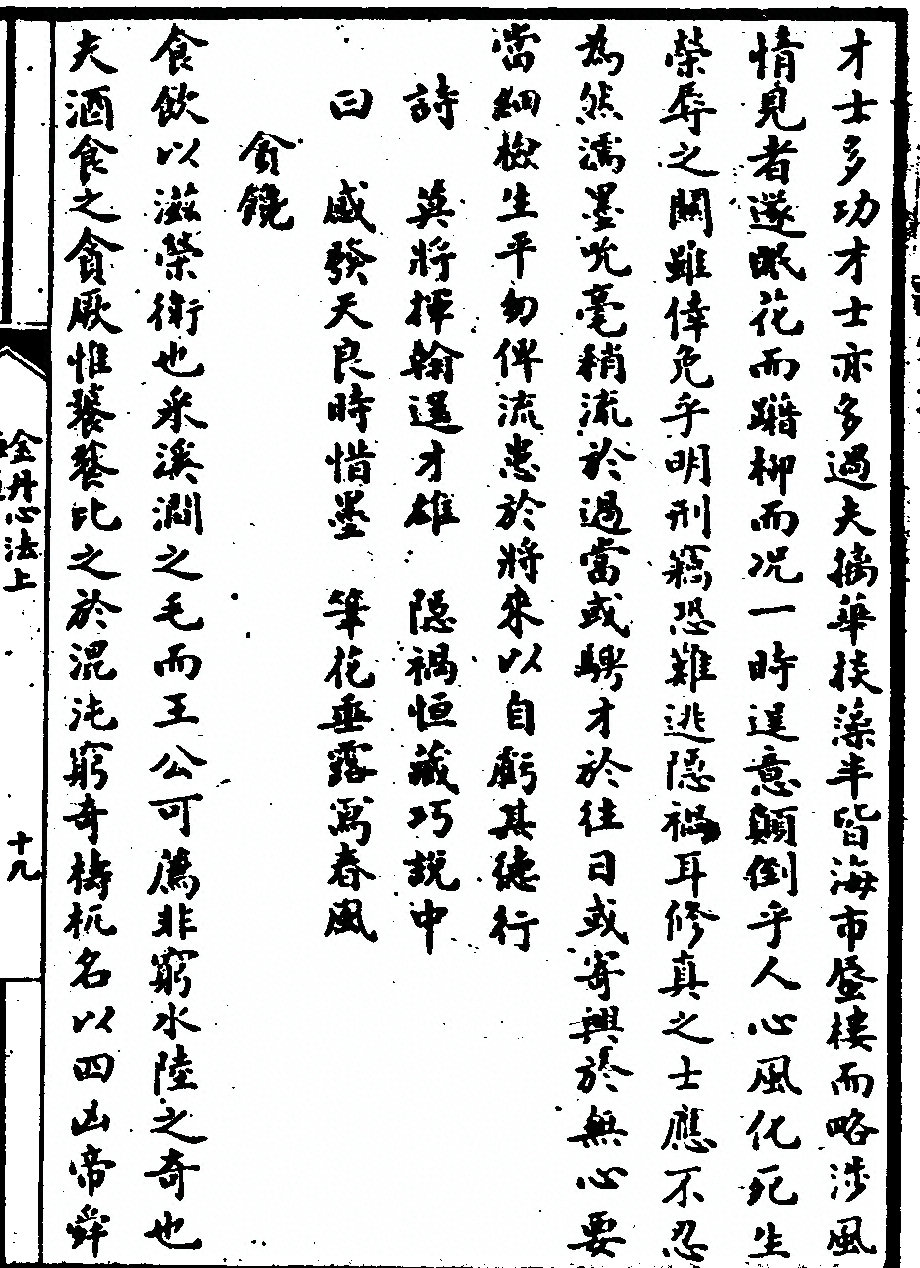 才士多功才士亦多過夫摛華掞藻半皆海市蜃樓而略涉風
情見者遂眠花而蹈柳而况一時逞意顛倒乎人心風化死生
榮辱之關雖倖免乎明刑竊恐難逃隱禍耳修真之士應不忍
為然濡墨吮毫稍流於過當或騁才於往日或寄興於無心要
當細檢生平勿俾流患於將來以自虧其德行
詩　莫將揮翰逞才雄　隱禍恒藏巧說中
曰　感發天良時惜墨　筆花垂露寫春風
貪饞
食飲以滋榮衛也采溪澗之毛而王公可薦非窮水陸之奇也
夫酒食之貪厥惟饕餮比之於混沌窮奇檮杌名以四凶帝舜
金丹心法上
十九